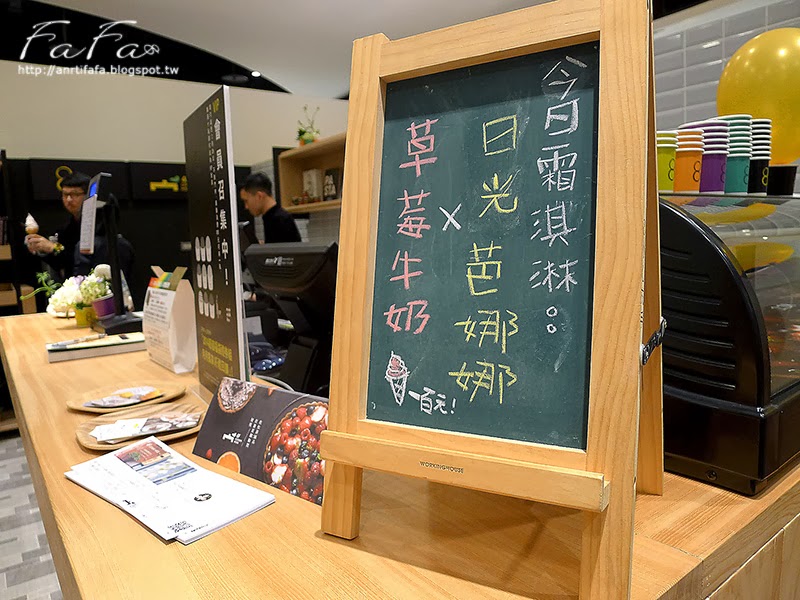 FaFa
http://anrtifafa.blogspot.tw
VIP
會員召集中!
今日霜淇淋:
日光芭娜娜
×
草莓牛奶
一百元!
WORKINGHOUSE
8